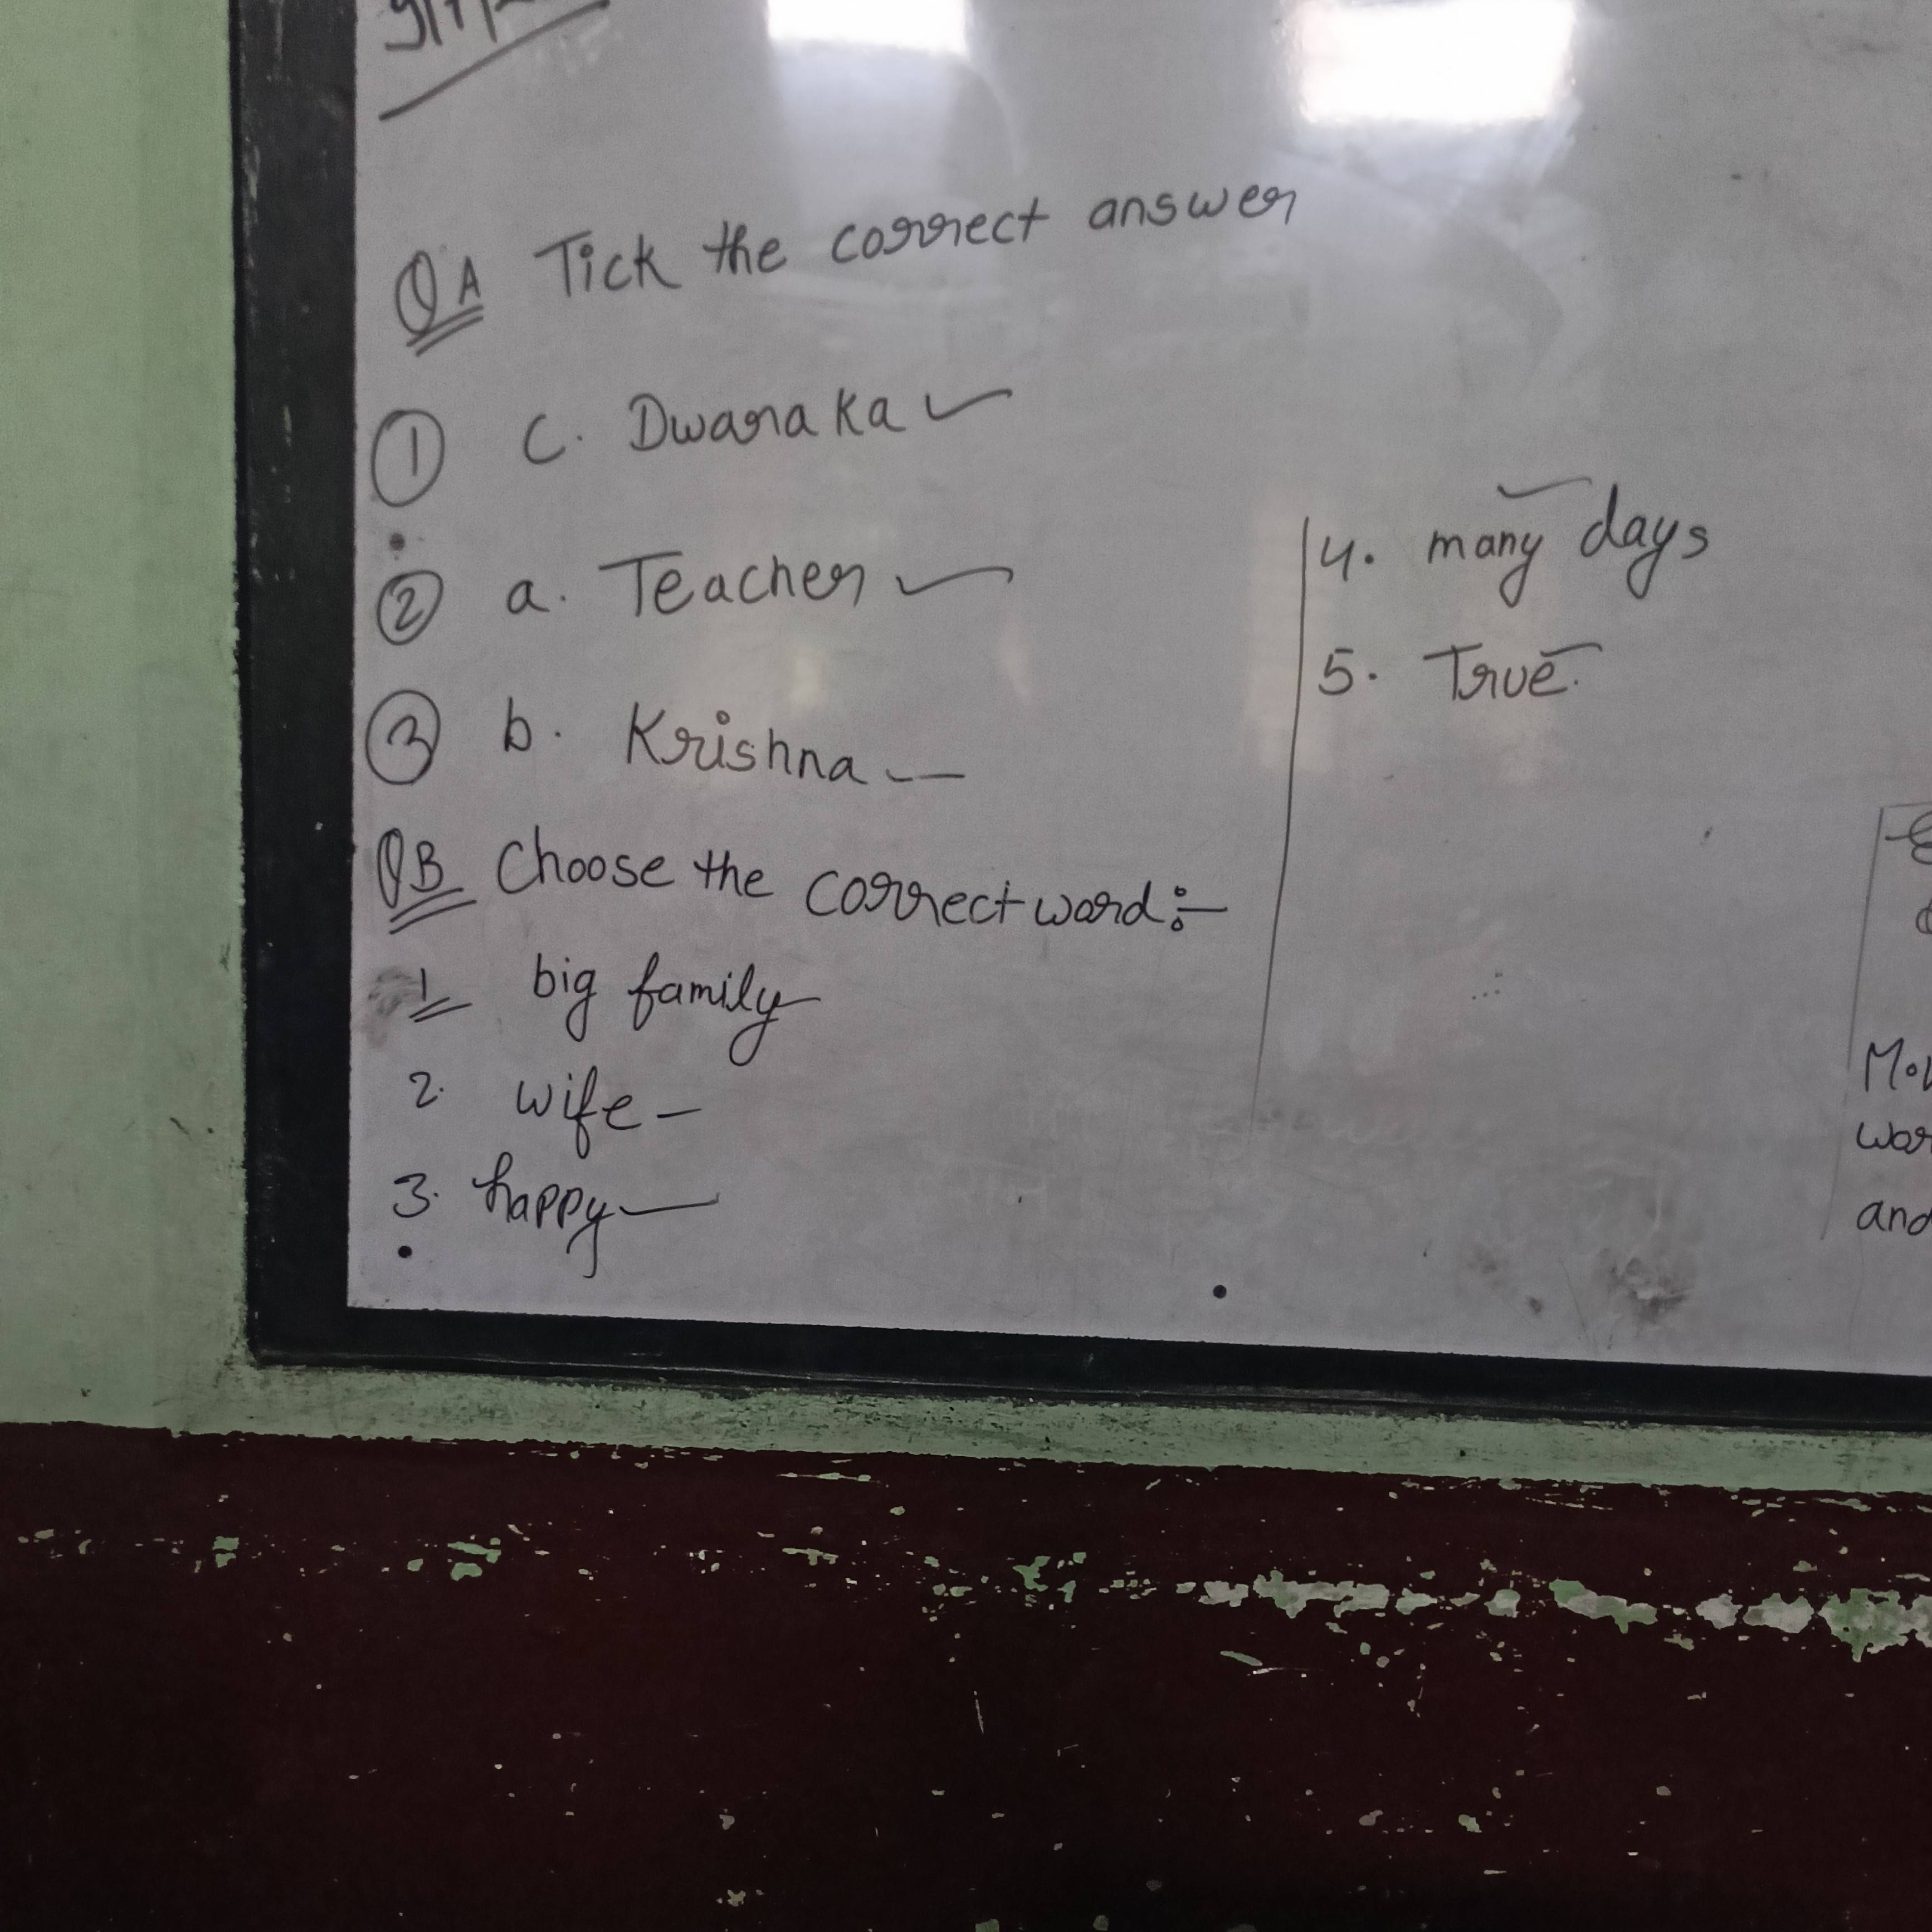 QA Tick the correct answer
1 C. Dwaraka ✓
2 a. Teacher ✓
3 b. Krishna
4. many days
5. True.
QB Choose the correct word :-
1 big family
2. wife -
3. happy
and